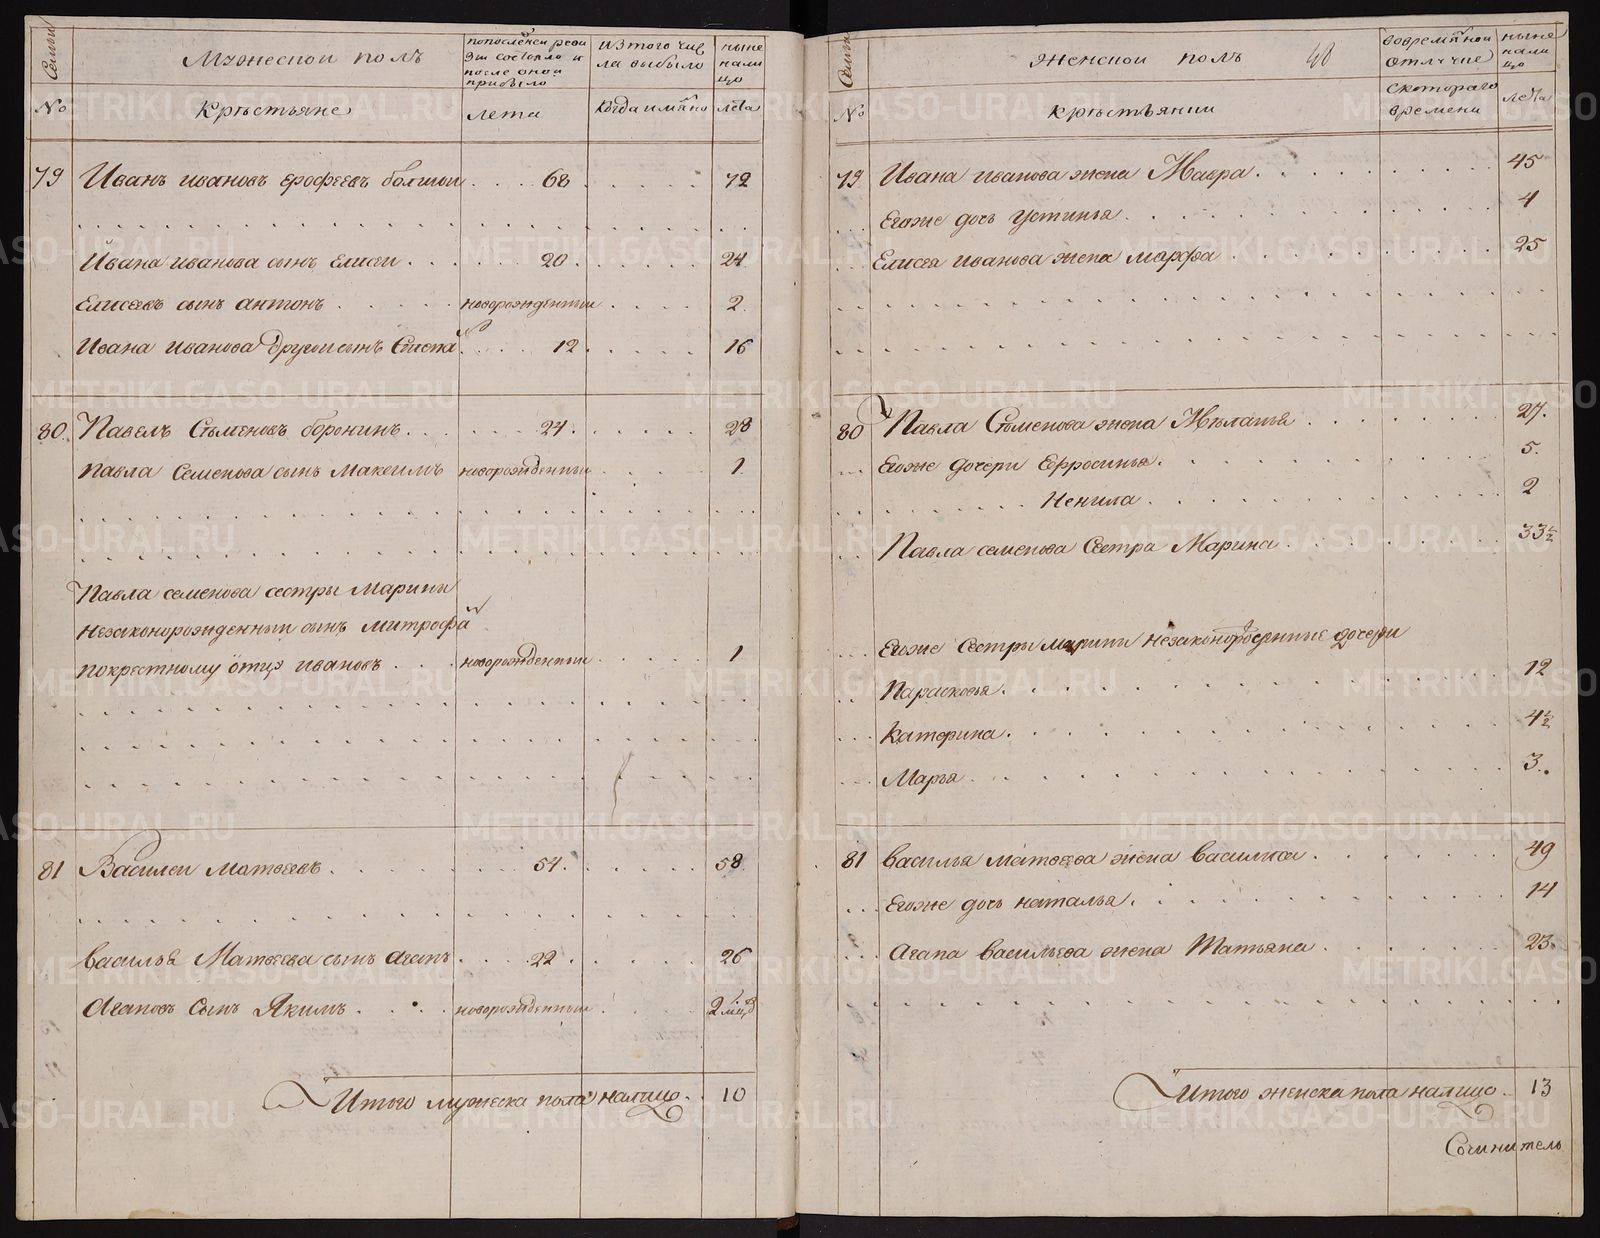 Семьи
Мужескои полъ
попоследнеи реви
зіи состояло и
после онои
прибыло
изтого чис
ла выбыло
ныне
нали
цо
№
Крестьяне
лета
Когда имянно
лета
79 Иванъ ивановъ ерофеевъ болшои 68 72
Ивана иванова сынъ Елисеи 20 24
Елисеевъ сынъ антонъ новорожденныи 2
Ивана иванова другои сынъ Степанъ 12 16
80 Павелъ Семеновъ боронинъ 24 28
Павла Семенова сынъ Максимъ новорожденныи 1
Павла семенова сестры Марины
незаконорожденныи сынъ митрофанъ
покрестному отцу ивановъ новорожденныи 1
81 Василеи матвеевъ 54 58
василья Матвеева сынъ агапъ 22 26
Агаповъ сынъ Якимъ новорожденныи 2 мц
Итого мужеска пола налицо 10
Семьи
Женскои полъ 48
вовремяннои
отлучке
ныне
нали
цо
№
крестьянки
скотораго
времени
лета
79 Ивана иванова жена Мавра 45
Егоже дочь устинья 4
Елисея иванова жена марфа 25
80 Павла Семенова жена Меланья 27
Егоже дочери Ефросинья 5
Ненила 2
Павла семенова Сестра Марина 33 ½
Егоже Сестры марины незаконорожденные дочери
Парасковья 12
Катерина 4 ½
Марья 3
81 василья матвеева жена василиса 49
Егоже дочь наталья 14
Агапа васильева жена Татьяна 23
Итого женска пола налицо 13
Сочинитель
METRIKI.GASO-URAL.RU